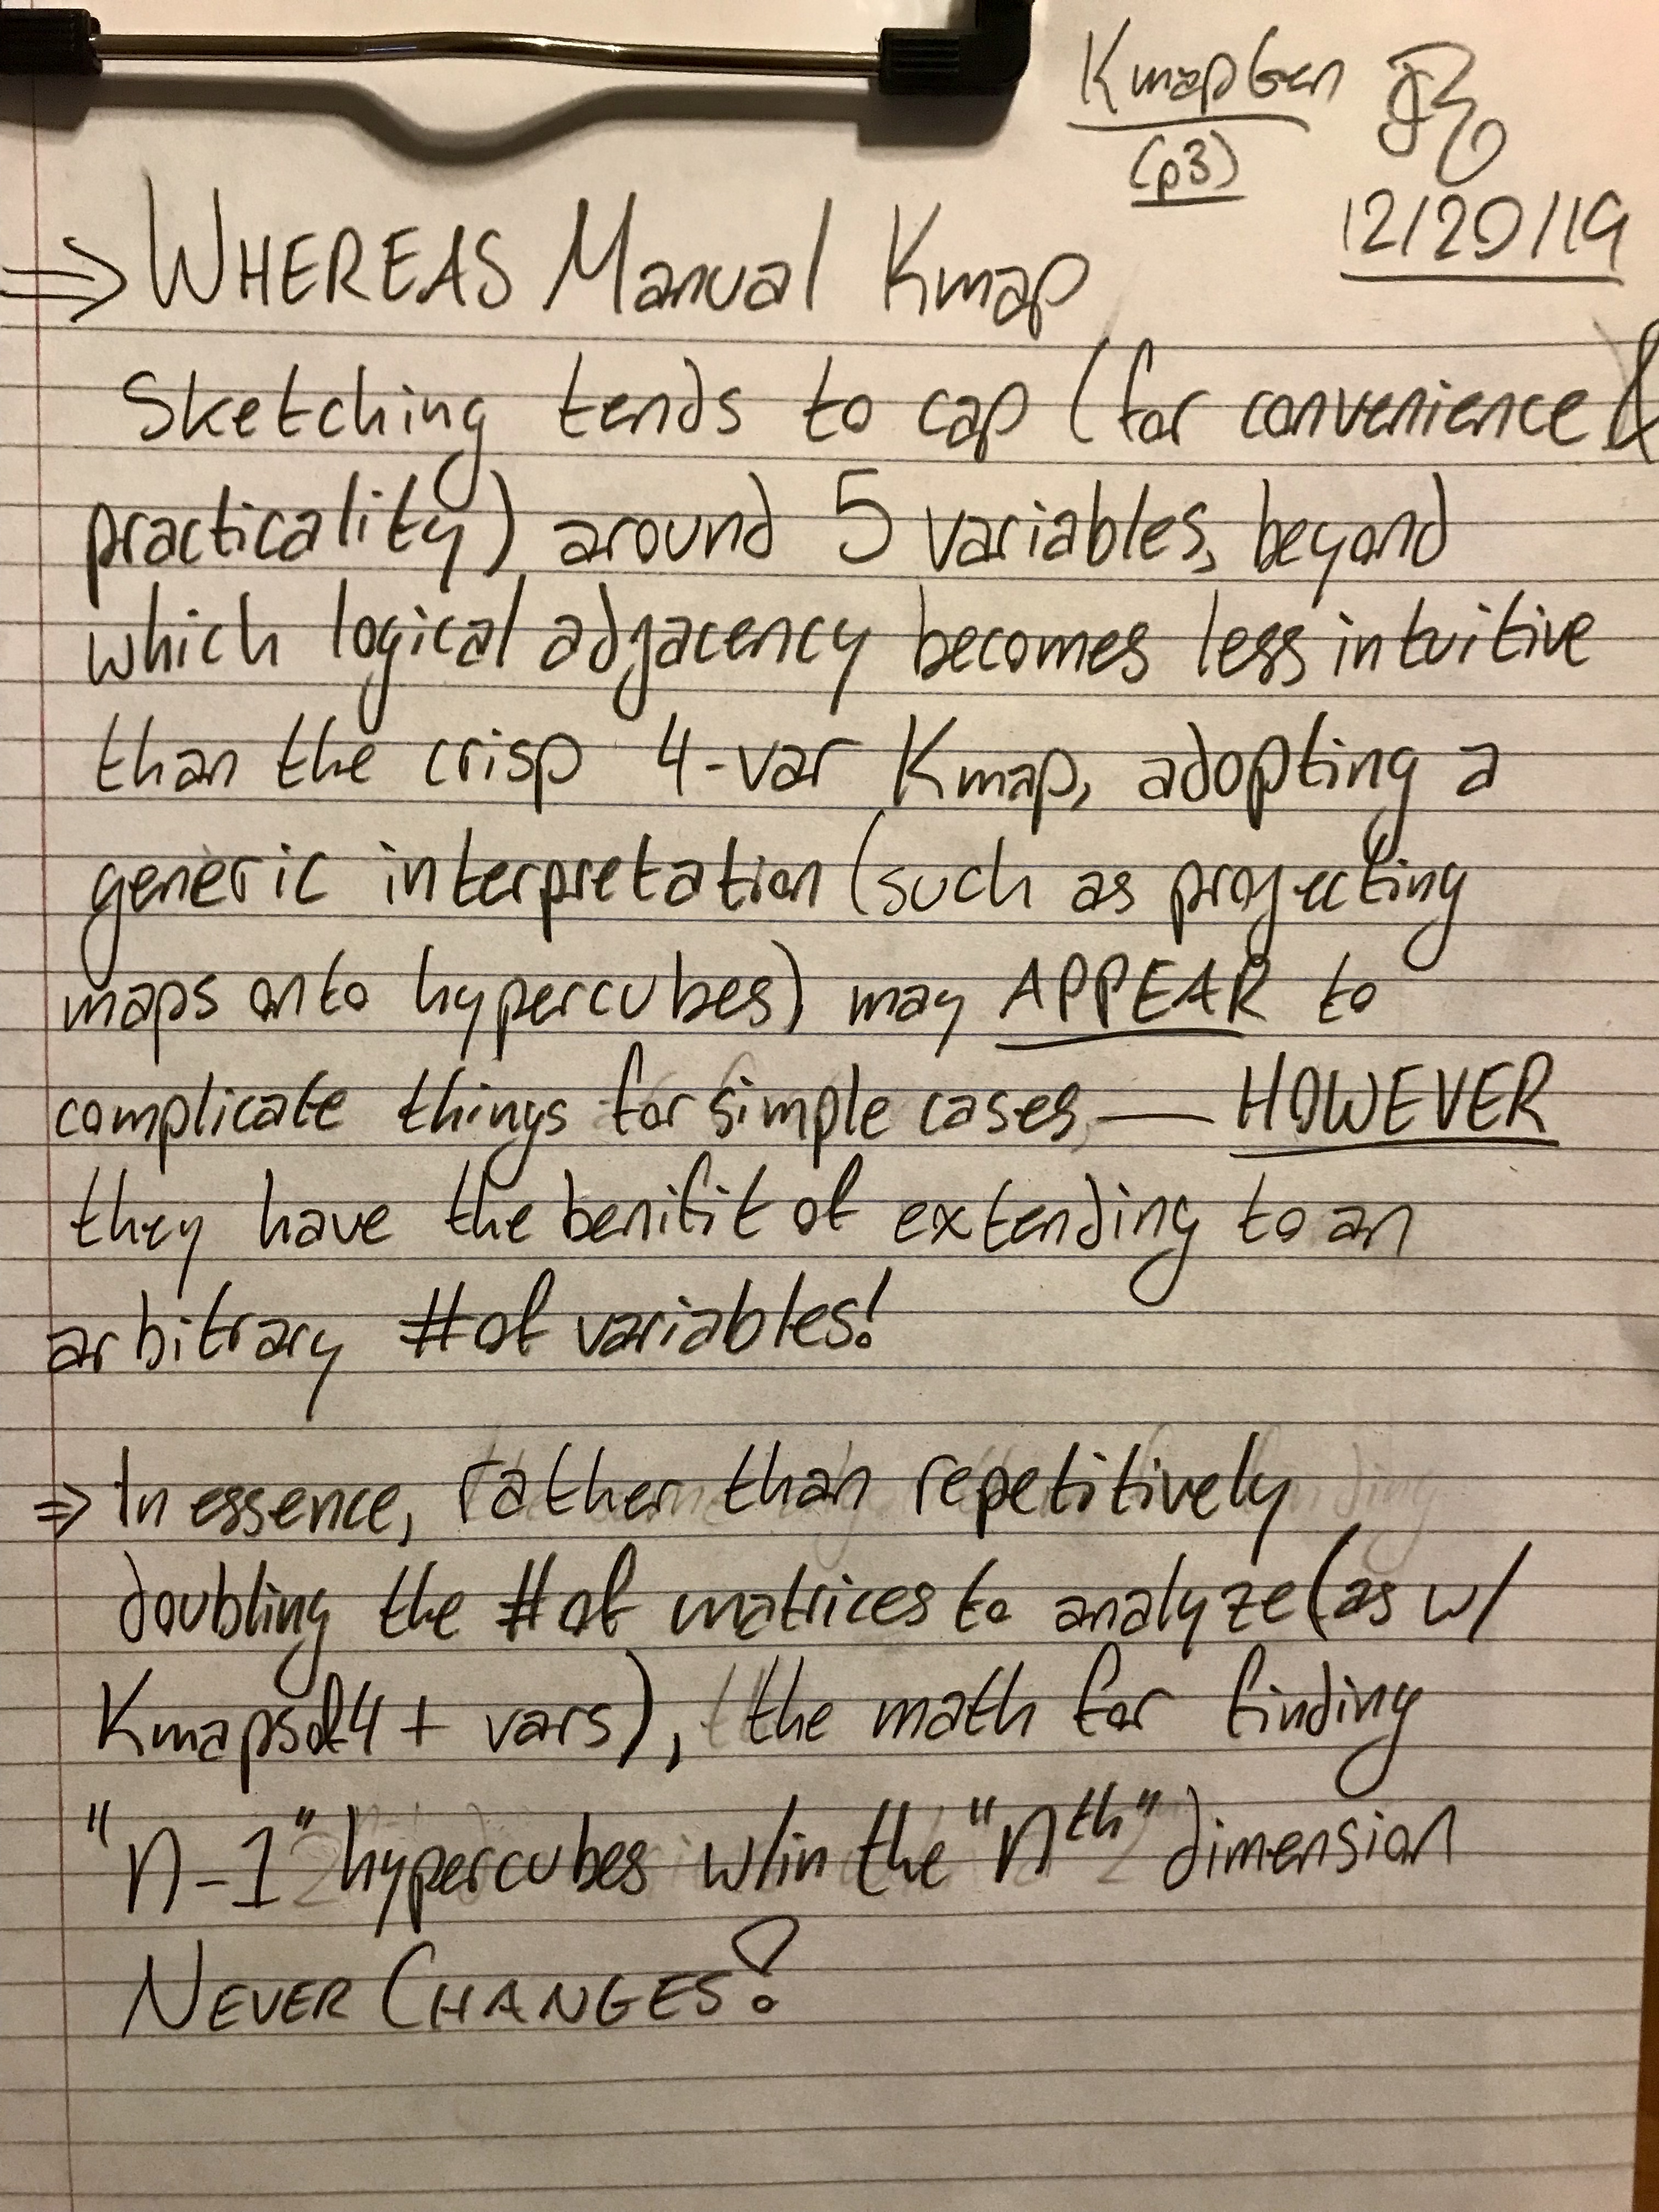 KmapGen
(p3)
12/20/19
⇒ WHEREAS Manual Kmap
Sketching tends to cap (for convenience &
practicality) around 5 variables, beyond
which logical adjacency becomes less intuitive
than the crisp 4-var Kmap, adopting a
generic interpretation (such as projecting
maps onto hypercubes) may APPEAR to
complicate things for simple cases — HOWEVER
they have the benifit of extending to an
arbitrary # of variables!
⇒ In essence, rather than repetitively
doubling the # of matrices to analyze (as w/
Kmaps of 4+ vars), the math for finding
"n-1" hypercubes w/in the "nth" dimension
NEVER CHANGES!